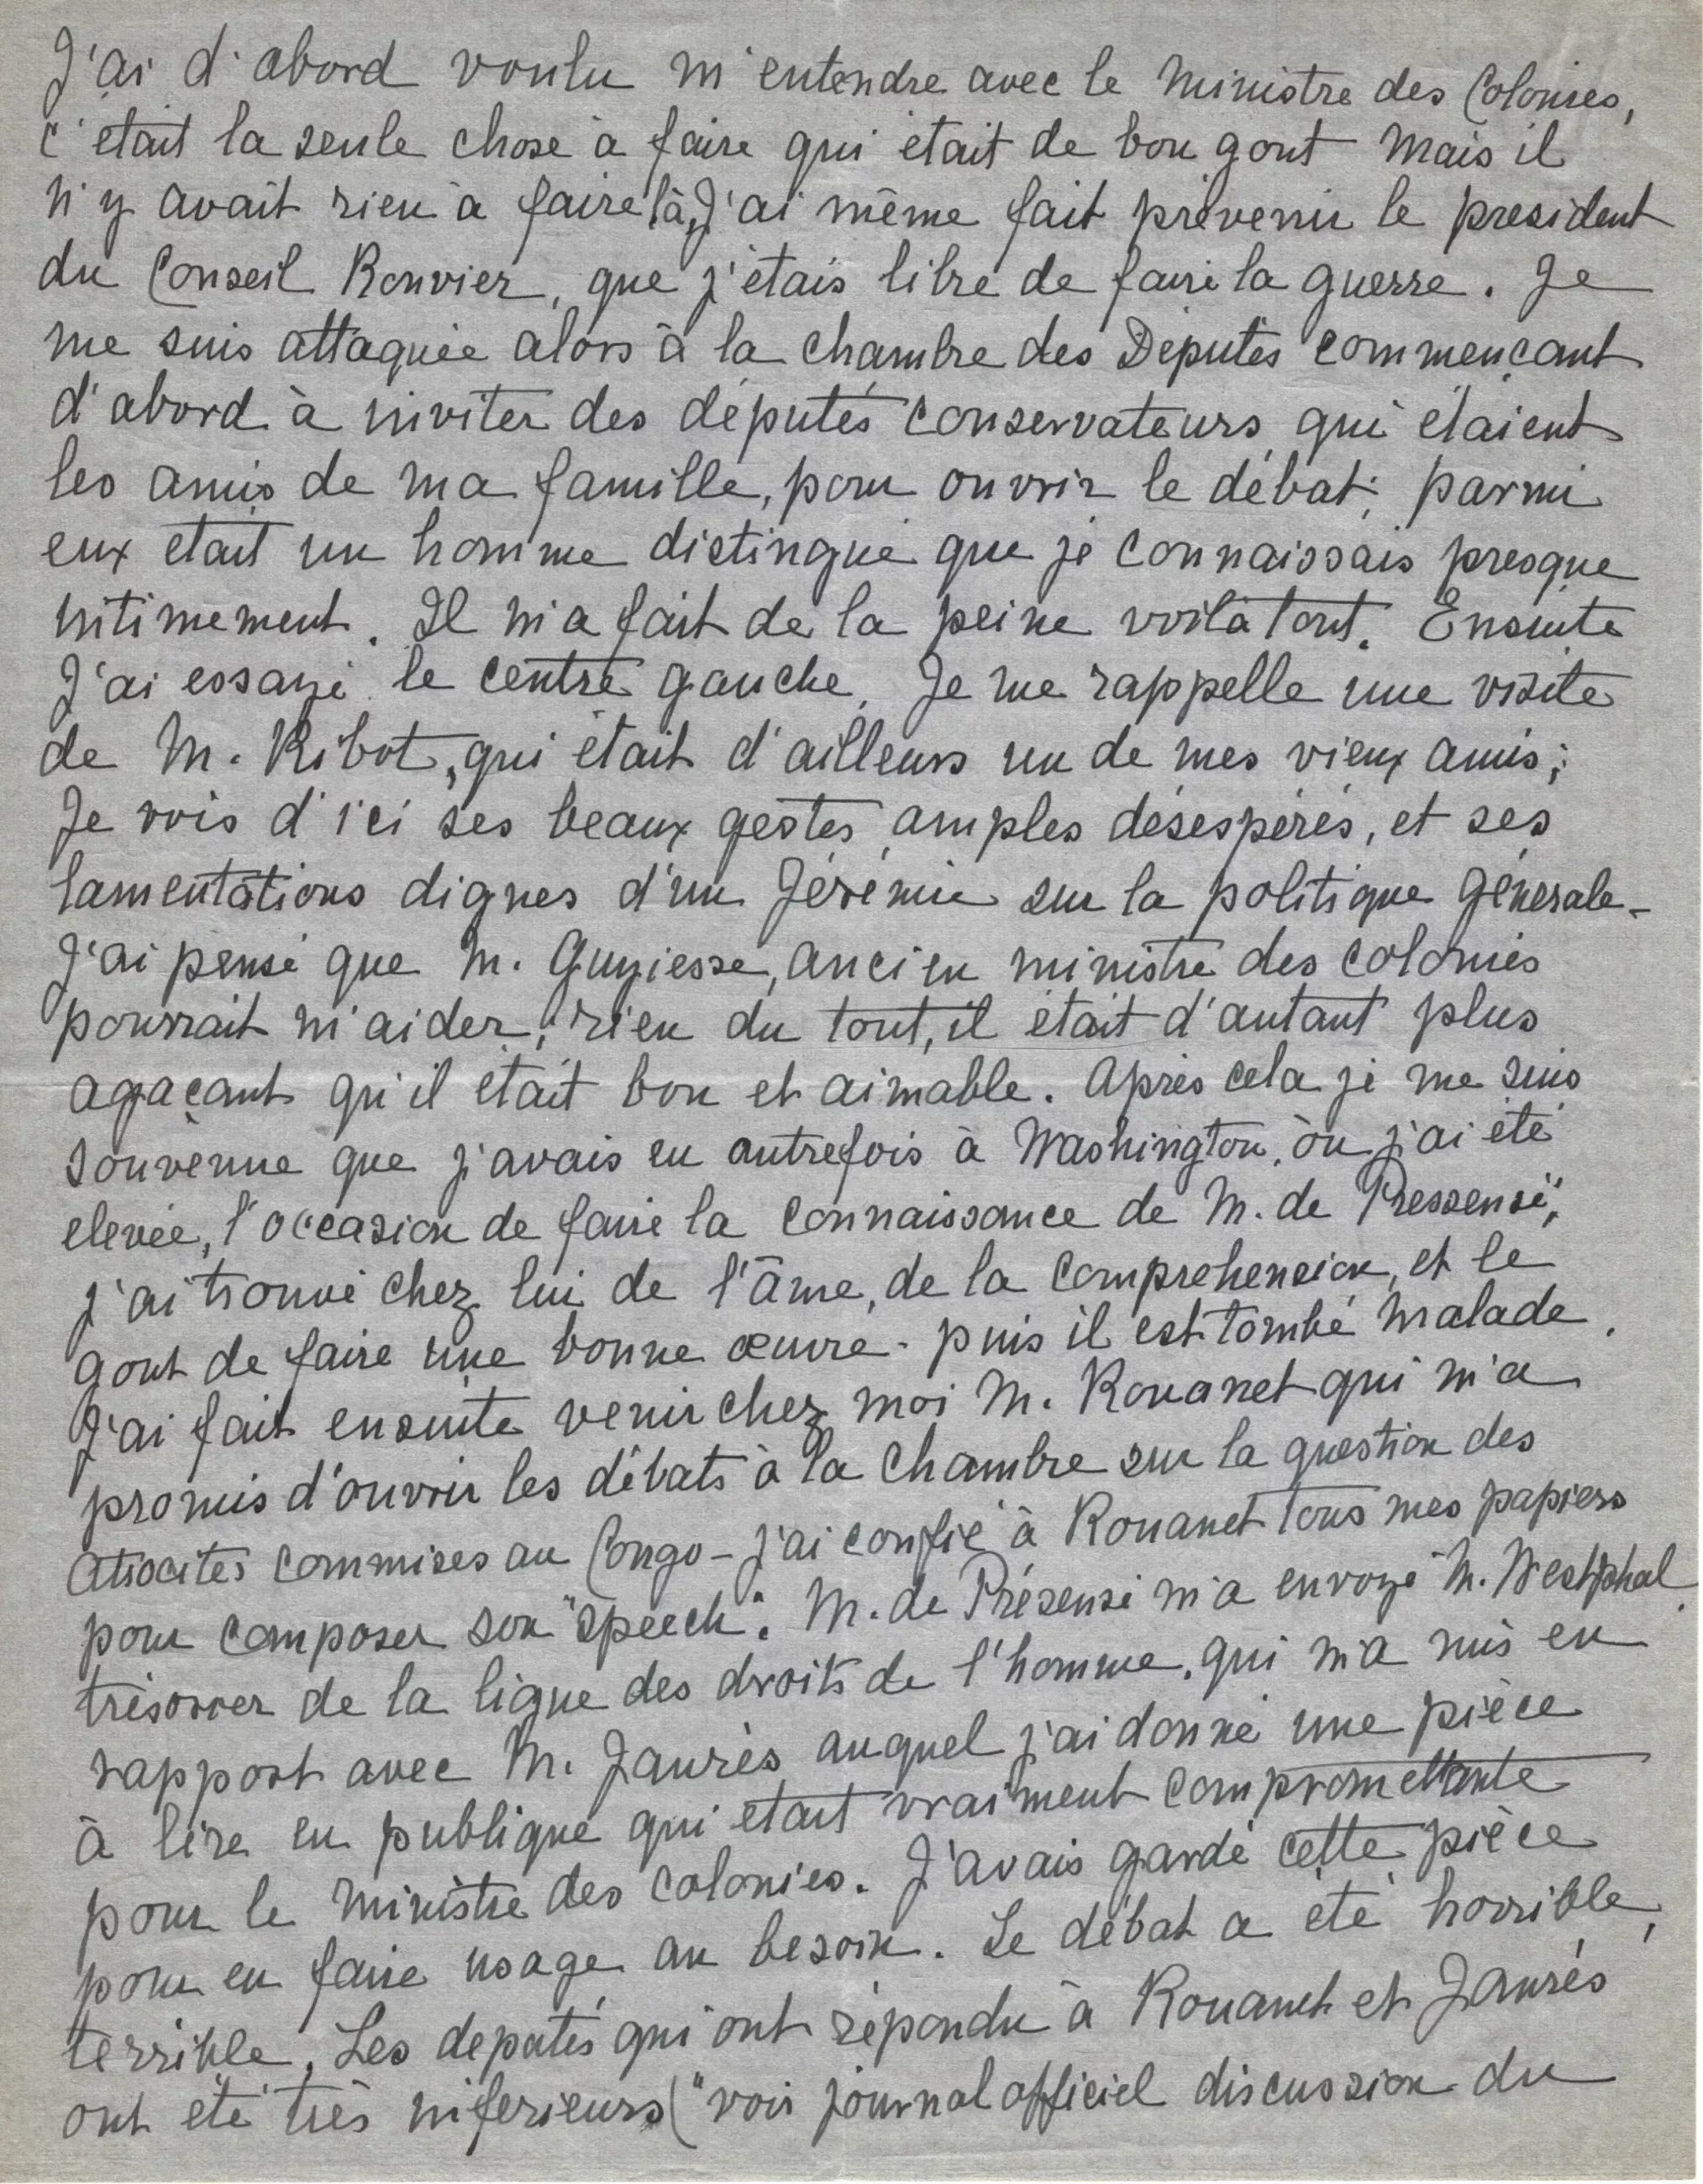 J'ai d'abord voulu m'entendre avec le Ministre des Colonies,
c'était la seule chose à faire qui était de bon gout mais il
n'y avait rien à faire là, J'ai même fait prévenir le president
du Conseil Rouvier, que j'étais libre de faire la guerre. Je
me suis attaquée alors à la chambre des Députés commençant
d'abord à inviter des députés conservateurs, qui étaient
les amis de ma famille, pour ouvrir le débat; parmi
eux était un homme distingué que je connaissais presque
intimement. Il m'a fait de la peine voilà tout. Ensuite
J'ai essayé le centre gauche, Je me rappelle une visite
de M. Ribot, qui était d'ailleurs un de mes vieux amis;
Je vois d'ici ses beaux gestes amples désespérés, et ses
lamentations dignes d'un Jérémie sur la politique générale -
J'ai pensé que M. Guyiesse, ancien ministre des colonies
pourrait m'aider; rien du tout, il était d'autant plus
agaçant qu'il était bon et aimable. Après cela je me suis
souvenue que j'avais eu autrefois à Washington, où j'ai été
elevée, l'occasion de faire la connaissance de M. de Pressensé;
j'ai trouvé chez lui de l'âme, de la comprehension, et le
gout de faire une bonne œuvre - puis il est tombé malade.
J'ai fait ensuite venir chez moi M. Rouanet qui m'a
promis d'ouvrir les débats à la Chambre sur la question des
atrocités commises au Congo - j'ai confié à Rouanet tous mes papiers
pour composer son "speech". M. de Présensé m'a envoyé M. Westphal
trésorier de la ligue des droits de l'homme, qui m'a mis en
rapport avec M. Jaurès auquel j'ai donné une pièce
à lire en publique qui était vraiment compromettante
pour le ministre des colonies. J'avais gardé cette pièce
pour en faire usage au besoin. Le débat a été horrible,
terrible. Les deputés qui ont répondu à Rouanet et Jaurès
ont été très inferieurs ("voir journal officiel discussion du